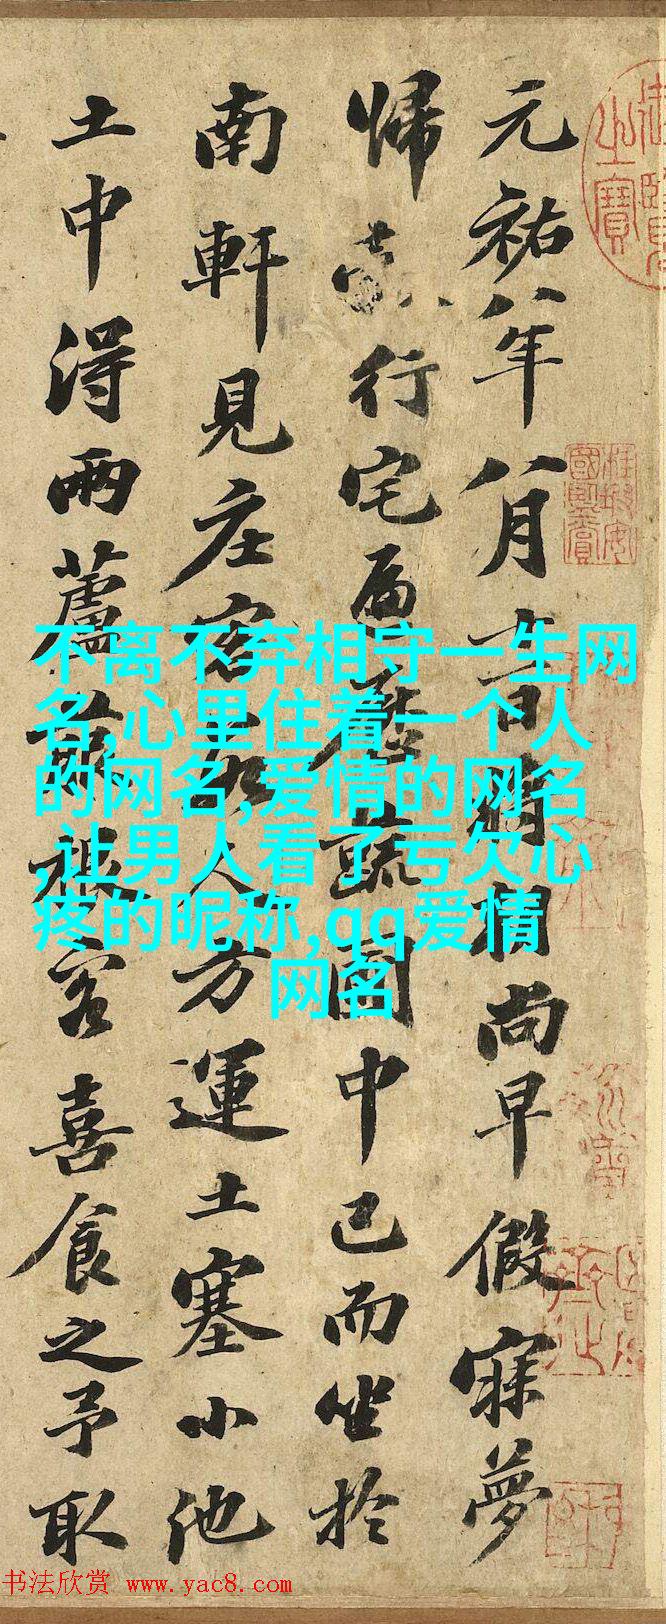 元祐八年八月十一日將朝尚早假寐夢
歸行宅遍歷蔬園中已而坐於
南軒見庄客數人方運土塞小池
土中得兩蘆菔根客喜食之予取
不离不弃相守一生网
名,心里住着一个人
的网名,爱情的网名
,让男人看了亏欠心
疼的昵称,qq爱情
网名
书法欣赏 www.yac8.com